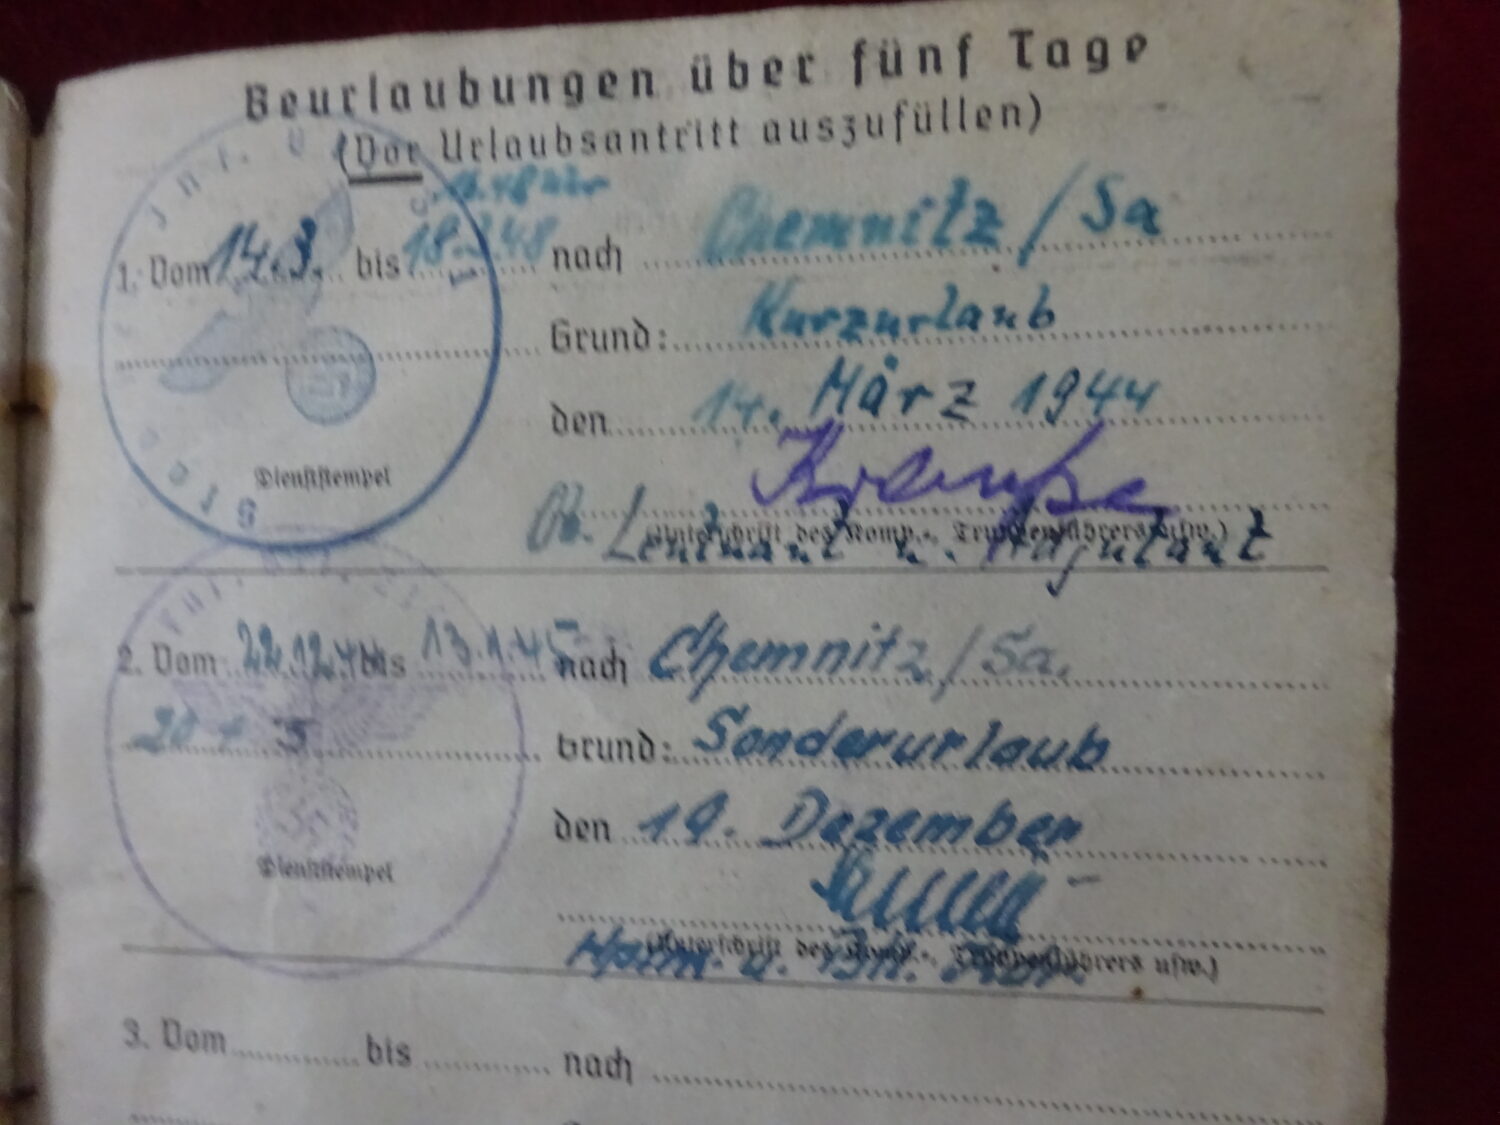 Beurlaubungen über fünf Tage
(Vor Urlaubsantritt auszufüllen)
1. Vom 14.3. bis nach Chemnitz / Sa
Grund: Kurzurlaub
den 14. März 1944
Dienststempel
Ob. Leutnant u. Adjutant
(Unterschrift des Komp.-, Truppenführers usw.)
2. Vom 22.12.44 bis 13.1.45 nach Chemnitz / Sa.
Grund: Sonderurlaub
den 19. Dezember
Dienststempel
(Unterschrift des Komp.-, Truppenführers usw.)
3. Vom bis nach